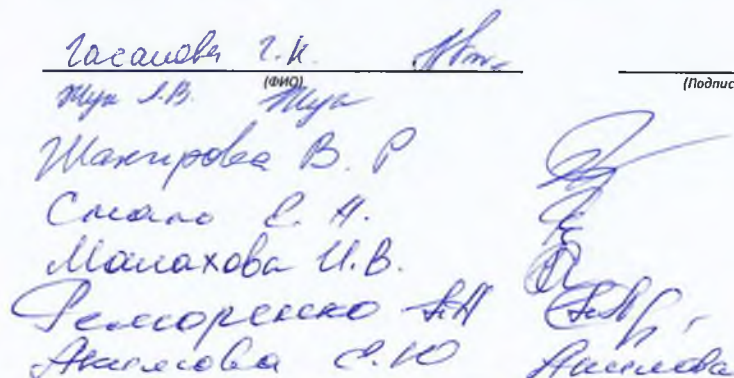 Гасанова Г.К.
(ФИО) (Подпис
Жук Л.В. Жук
Шакирова В. Р
Смало Е. А.
Малахова И.В.
Реморенко
Акимова Е.Ю Акимова